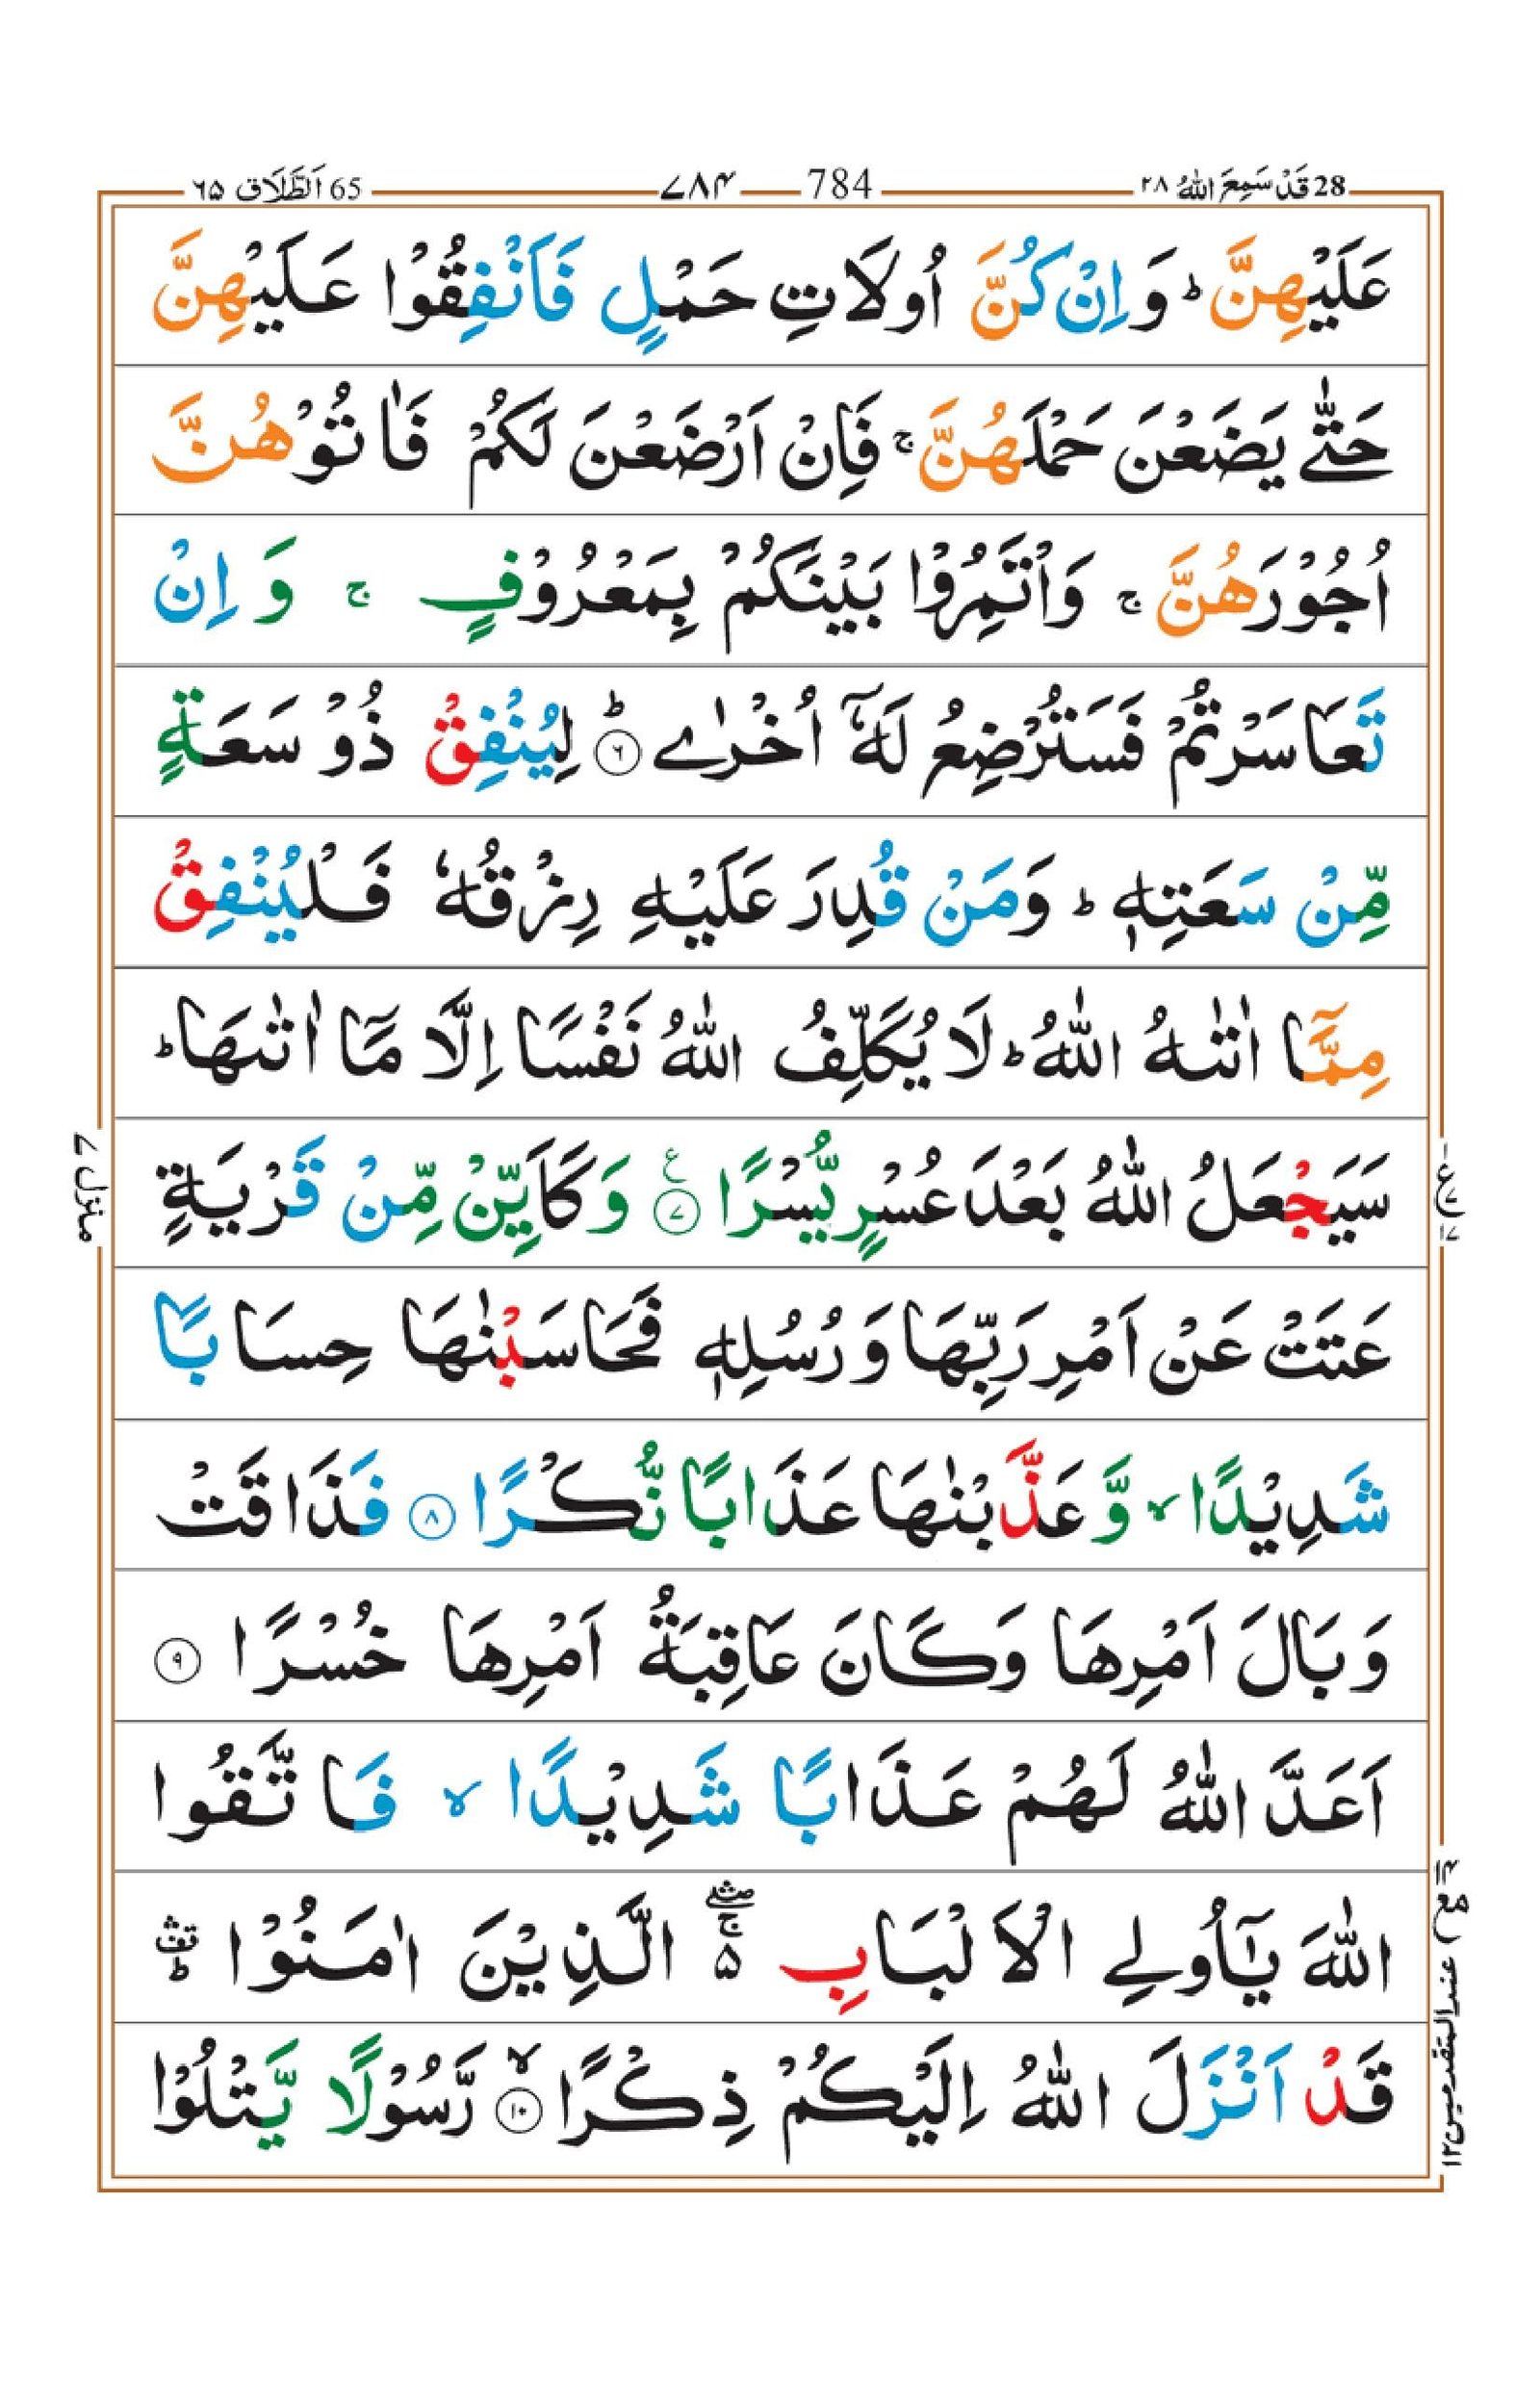 28 قَدْ سَمِعَ اللّٰهُ ٢٨
784 ٧٨۴
65 اَلطَّلَاق ٦٥
عَلَيْهِنَّ ؕ وَاِنْ كُنَّ اُولَاتِ حَمْلٍ فَاَنْفِقُوْا عَلَيْهِنَّ
حَتّٰى يَضَعْنَ حَمْلَهُنَّ ۚ فَاِنْ اَرْضَعْنَ لَكُمْ فَاٰتُوْهُنَّ
اُجُوْرَهُنَّ ۚ وَاْتَمِرُوْا بَيْنَكُمْ بِمَعْرُوْفٍ ۚ وَاِنْ
تَعَاسَرْتُمْ فَسَتُرْضِعُ لَهٗۤ اُخْرٰى ؕ ۶ لِيُنْفِقْ ذُوْ سَعَةٍ
مِّنْ سَعَتِهٖ ؕ وَمَنْ قُدِرَ عَلَيْهِ رِزْقُهٗ فَلْيُنْفِقْ
مِمَّاۤ اٰتٰىهُ اللّٰهُ ؕ لَا يُكَلِّفُ اللّٰهُ نَفْسًا اِلَّا مَاۤ اٰتٰىهَا ؕ
سَيَجْعَلُ اللّٰهُ بَعْدَ عُسْرٍ يُّسْرًا ۧ ۷ وَكَاَيِّنْ مِّنْ قَرْيَةٍ
عَتَتْ عَنْ اَمْرِ رَبِّهَا وَرُسُلِهٖ فَحَاسَبْنٰهَا حِسَابًا
شَدِيْدًا ۙ وَّعَذَّبْنٰهَا عَذَابًا نُّكْرًا ۸ فَذَاقَتْ
وَبَالَ اَمْرِهَا وَكَانَ عَاقِبَةُ اَمْرِهَا خُسْرًا ۹
اَعَدَّ اللّٰهُ لَهُمْ عَذَابًا شَدِيْدًا ۙ فَاتَّقُوا
اللّٰهَ يٰۤاُولِى الْاَلْبَابِ ۖۚ ۵ الَّذِيْنَ اٰمَنُوْا ؕ
قَدْ اَنْزَلَ اللّٰهُ اِلَيْكُمْ ذِكْرًا ۙ ۱۰ رَّسُوْلًا يَّتْلُوْا
منزل ٧